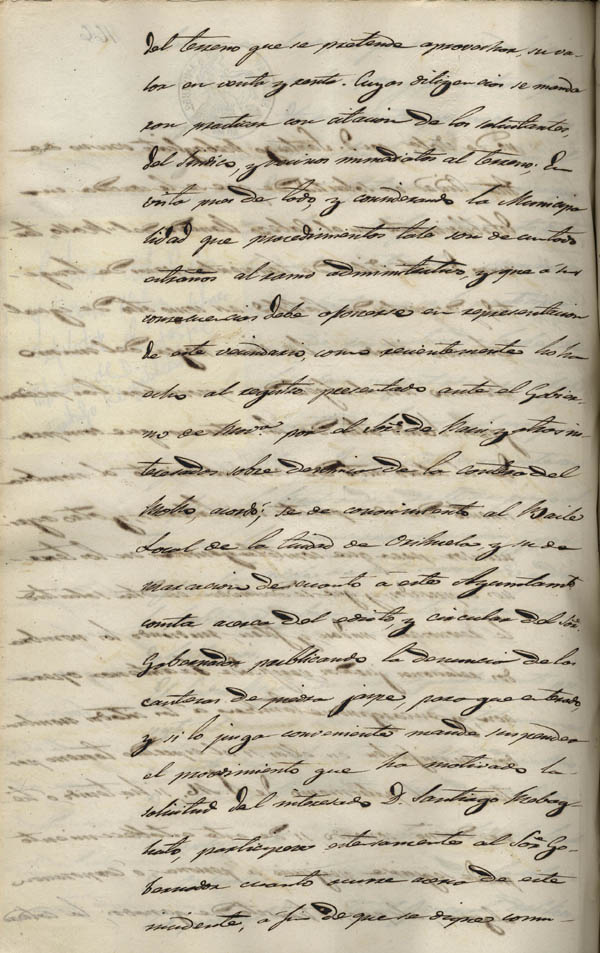 del terreno que se pretende aprovechar, su va-
lor en venta y renta. Cuyas diligencias se manda
ron practicar con citacion de los solicitantes,
del Sindico, y vecinos inmediatos al terreno; En
vista pues de todo, y considerando la Municipa
lidad que procedimientos tale son de un todo
estraños al ramo administrativo, y que a sus
consecuencias debe oponerse en representacion
de este vecindario, como recientemente lo ha
echo al registro presentado ante el Gobier-
no de por el Sor. de y otros in
teresados sobre denuncia de la cantera del
acordó; se de conocimiento al Baile
Local de la Ciudad de Orihuela y su de
marcacion de cuanto á este Ayuntamto.
consta acerca del edicto y circular del Sor.
Gobernador publicando la denuncia de las
canteras de piedra jaspe, para que enterado,
y si lo juzga conveniente mande suspender
el procedimiento que ha motivado la
solicitud del interesado D. Santiago
participese estensamente al Sor. Go-
bernador cuanto ocurre acerca de este
incidente, a fin de que se digne comu-